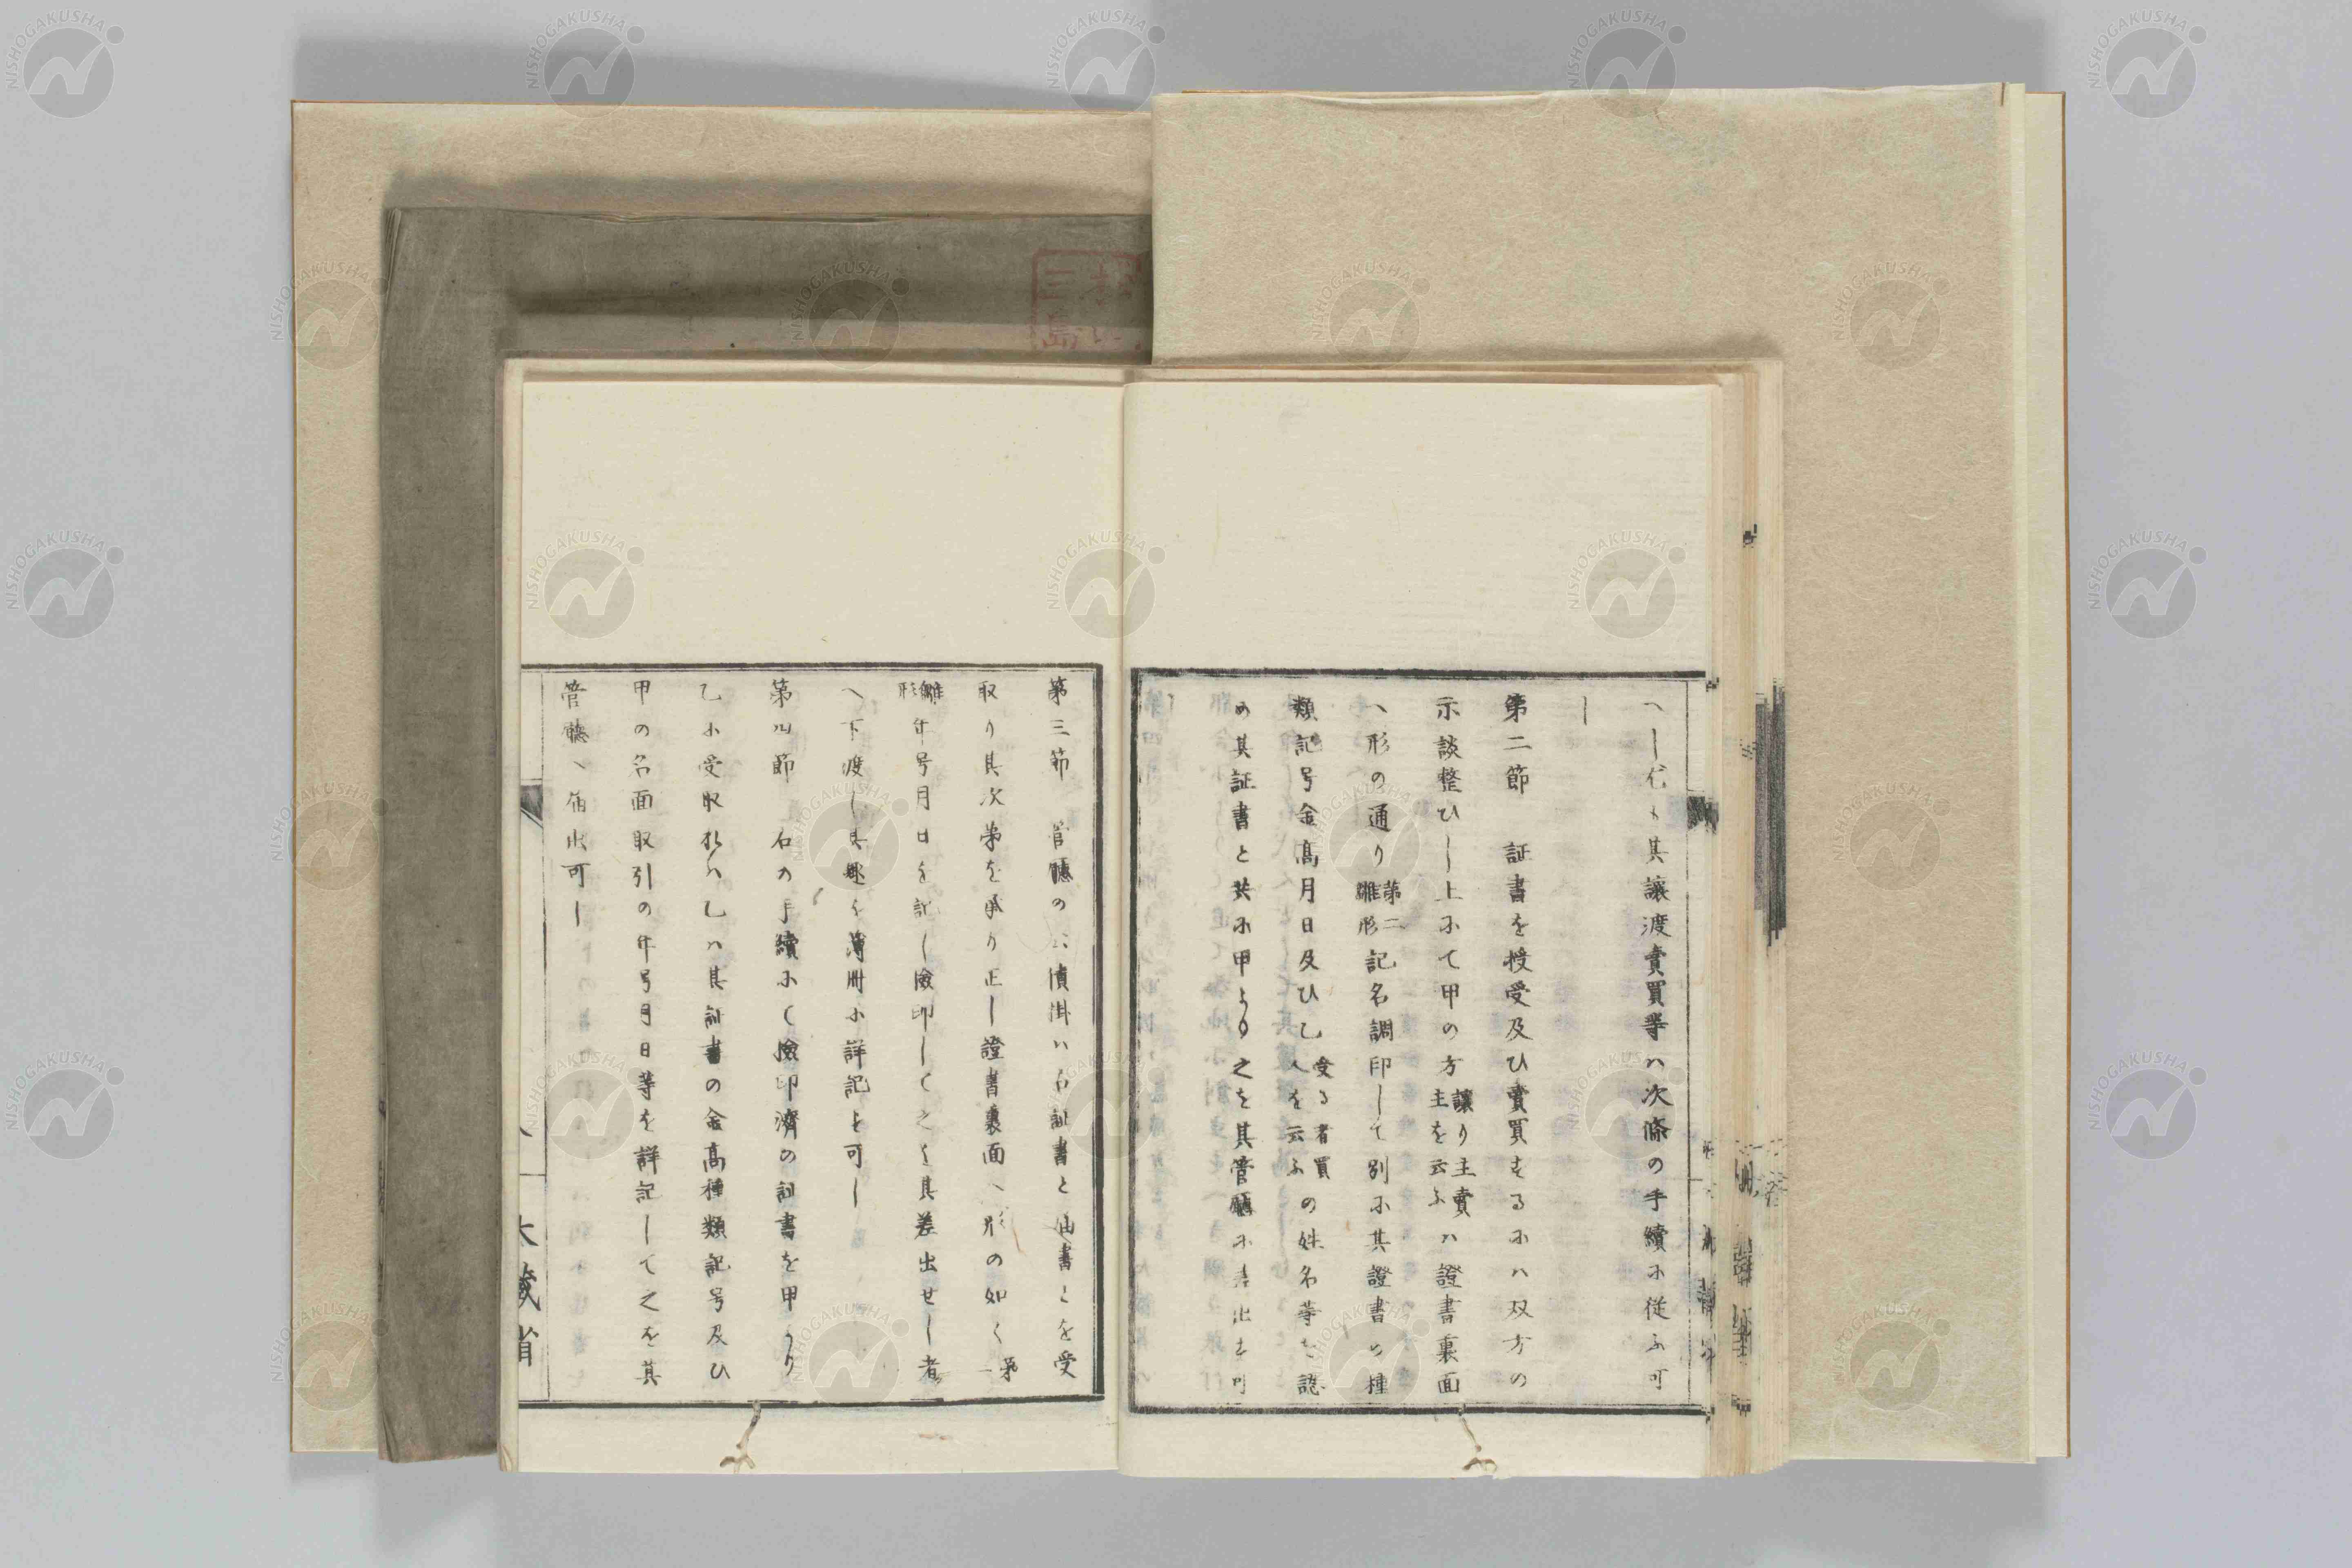 へし尤も其讓渡賣買等ハ次條の手續に従ふ可
し
第二節 証書を授受及ひ賣買するにハ双方の
示談整ひし上にて甲の方讓り主賣主を云ふハ證書裏面
へ形の通り第二雛形記名調印して別に其證書の種
類記号金高月日及ひ乙受る者買人を云ふの姓名等を認
め其証書と共に甲より之を其管廳に差出す可
第三節 管廳の公債掛ハ右証書と届書とを受
取り其次第を承り正し證書裏面へ形の如く第一
雛形年号月日を記し檢印して之を其差出せし者
へ下渡し其趣を薄冊に詳記す可し
第四節 右の手續にて檢印濟の証書を甲より
乙に受取れハ乙ハ其証書の金高種類記号及ひ
甲の名面取引の年号月日等を詳記して之を其
管廳へ届出可し
大蔵省
三島
NISHOGAKUSHA